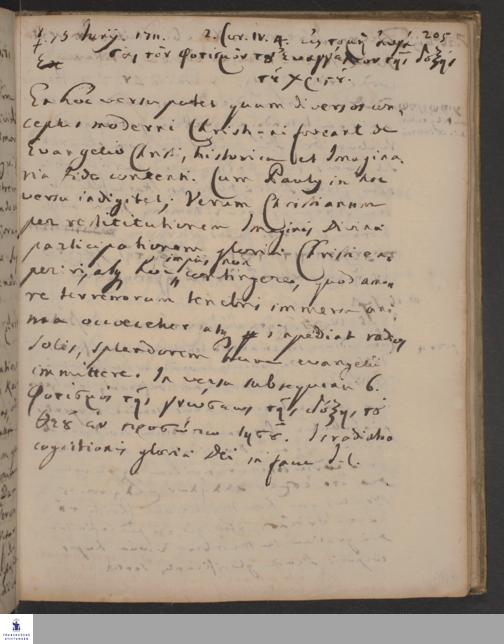 Junij. 1711. 2. Cor. IV. 4. εἰς τὸ μὴ αὐγά 205
σαι τὸν φωτισμὸν τοῦ εὐαγγελίου τῆς δόξης
τοῦ χριστοῦ.
Ex hoc versu patet quam diversos con,
ceptus moderni Christi-ani foveant de
Evangelio Christi, historica et Imagina,
ria fide contenti. Cum Paulus in hoc
versu indigitet, Verum Christianum
per restitutionem Imaginis Divinae
participationem gloriae Christi ex,
periri, atq hoc impiis non contingere, quod amo
re terrenorum tenebris immersa ani
ma occoecetur atq impediat radios
Solis, splendorem suum evangelii
immittere. In versu subsequenti 6.
φωτισμὸς τῆς γνώσεως τῆς δόξης τοῦ
θεοῦ ἐν προσώπῳ Ἰησοῦ. Irradiatio
cognitionis gloriae Dei in facie J. C.